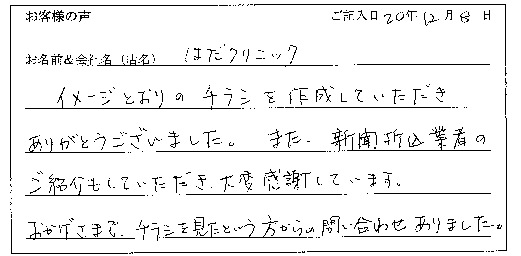 お客様の声 ご記入日 20年 12月 8日
お名前&会社名（店名） はだクリニック
イメージどおりの チラシを作成していただき
ありがとうございました。また、新聞折込業者の
ご紹介もしていただき、大変感謝しています。
おかげさまで、チラシを見たという方からの問い合わせありました。